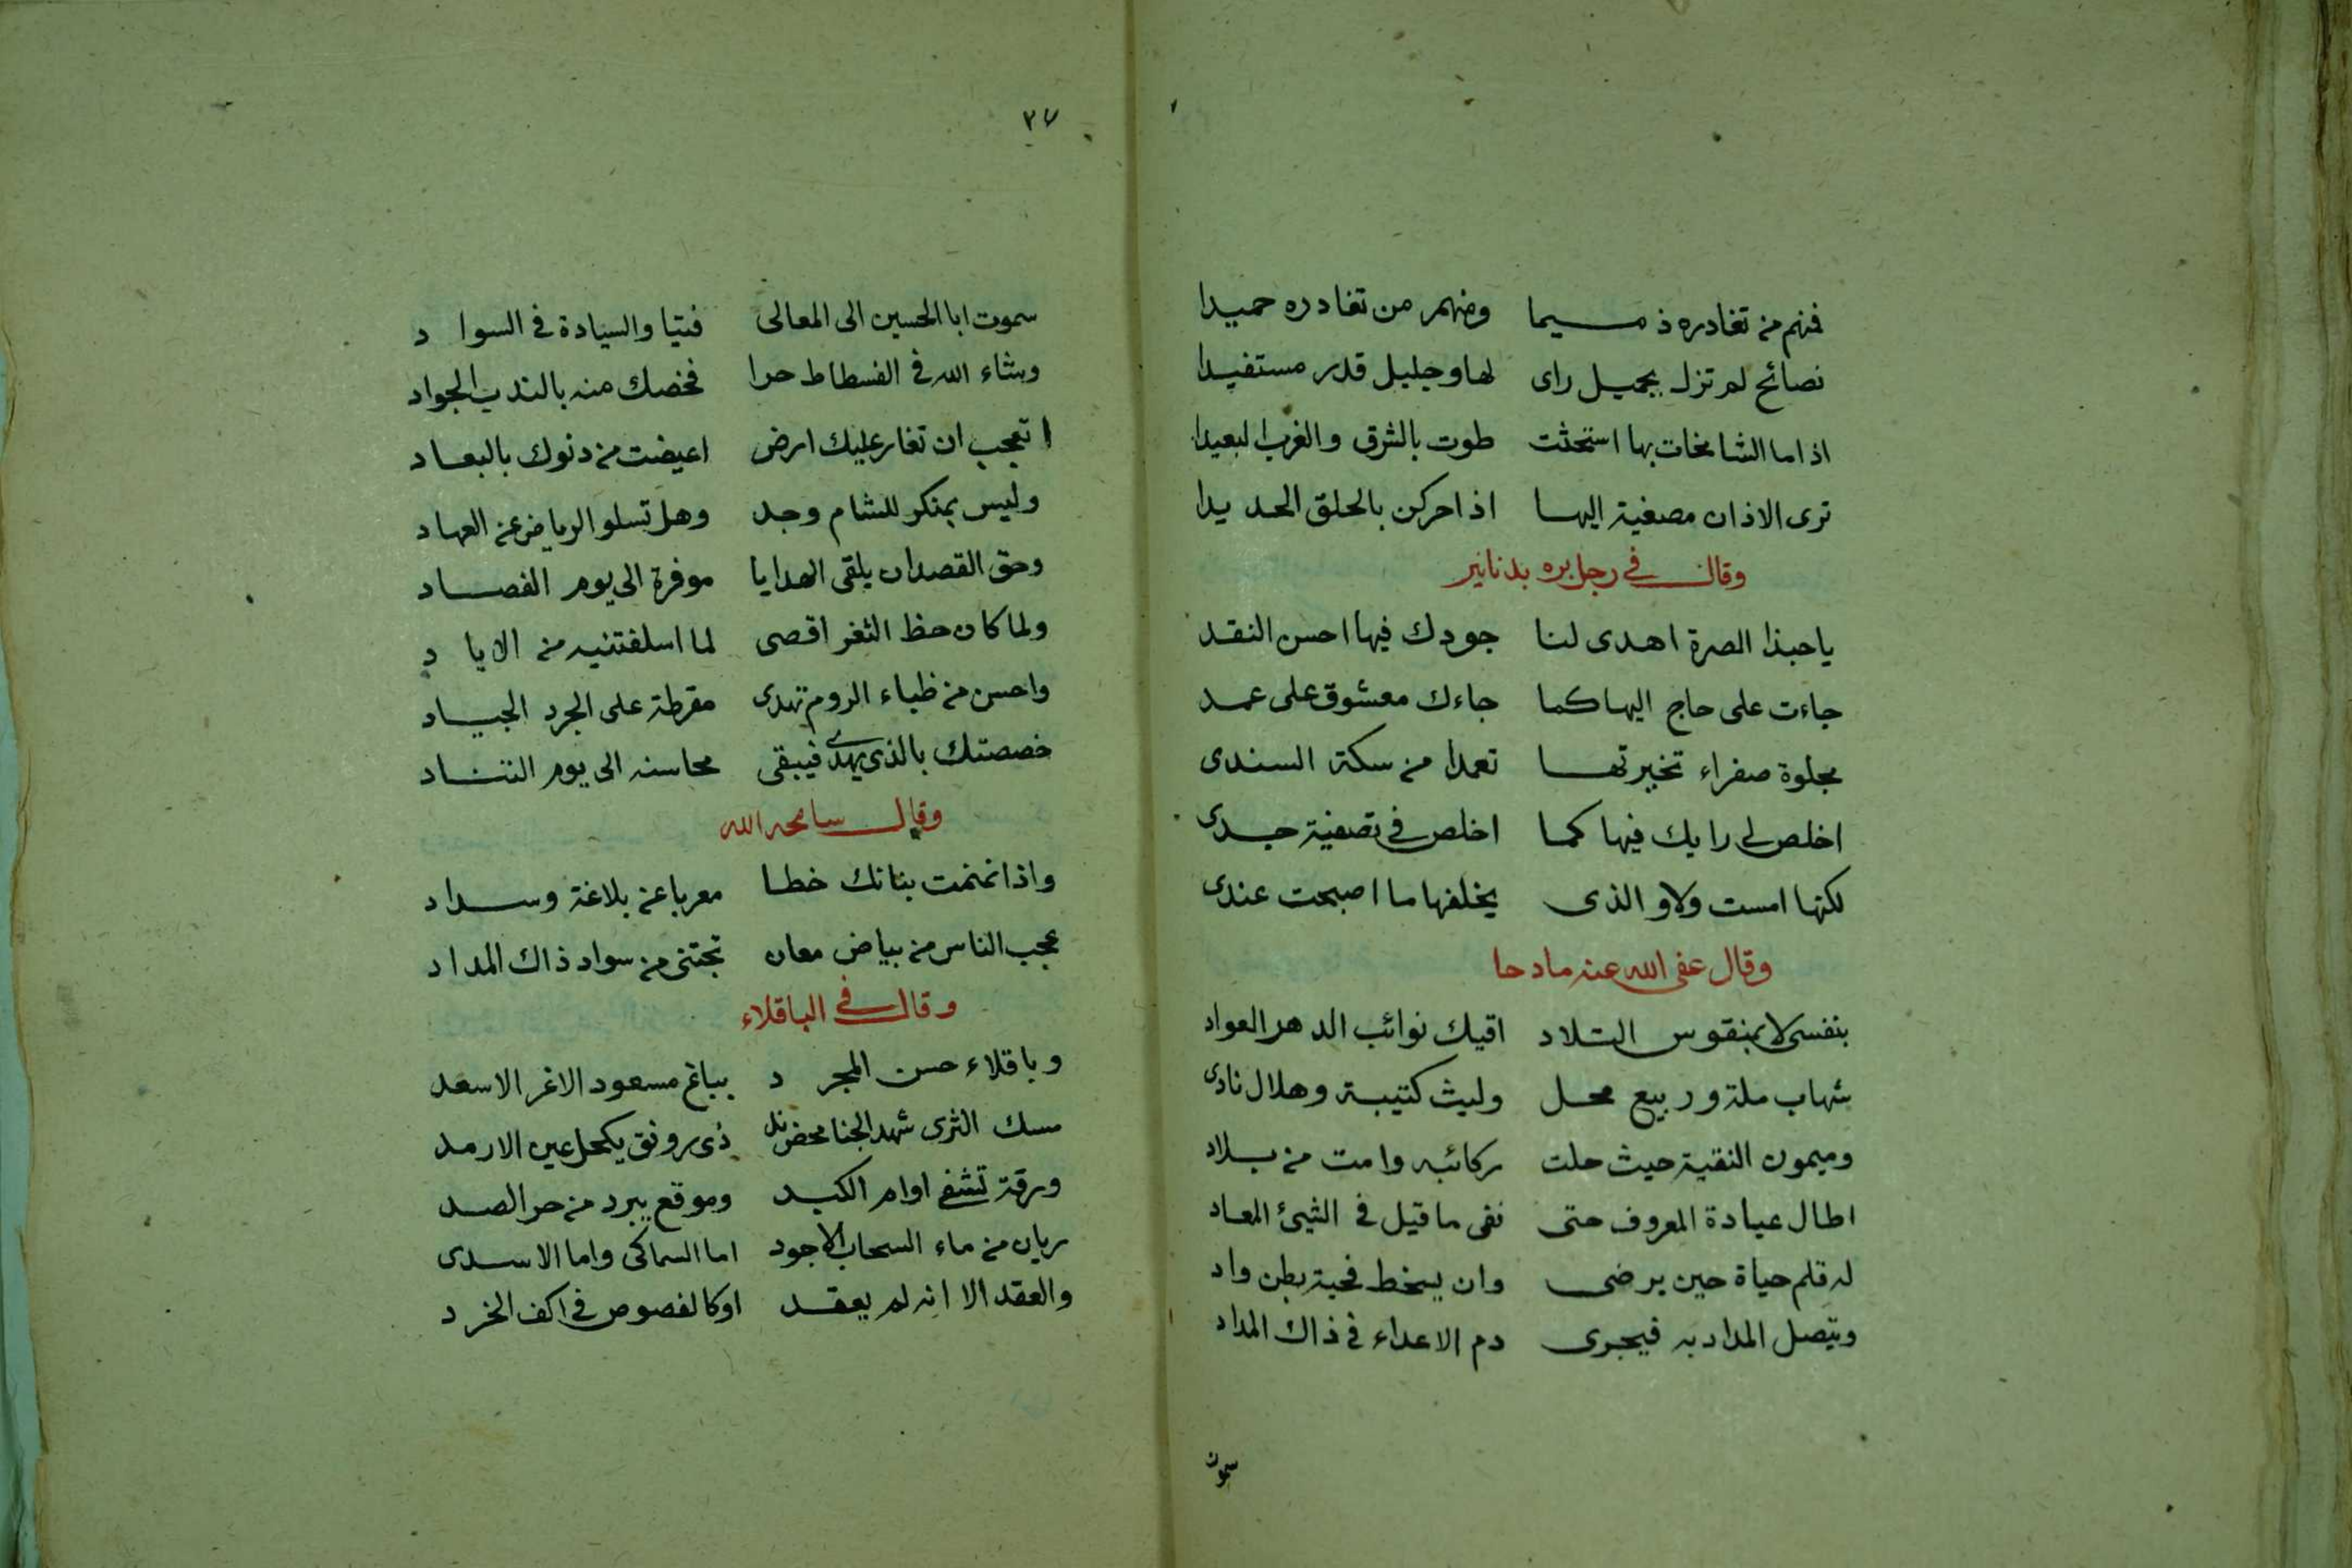 فمنهم من تغادره ذميما ومنهم من تغادره حميدا
نصائح لم تزل بجميل راى لها وجليل قدر مستفيدا
اذا ما الشامخات بها استحثت طوت بالشرق والغرب البعيدا
ترى الاذان مصغية اليها اذا حركن بالحلق الحديدا
وقال في رجل بره بدنانير
يا حبذا الصرة اهدى لنا جودك فيها احسن النقد
جاءت على حاج اليها كما جاءك معشوق على عمد
مجلوة صفراء تخيرتها تعمدا من سكة السندى
اخلص لي رايك فيها كما اخلص في تصفية جدى
لكنها امست ولاو الذى يخلفها ما اصبحت عندى
وقال عفى الله عنه مادحا
بنفسى لا بمنقوس التلاد اقيك نوائب الدهر العواد
شهاب ملة وربيع محل وليث كتيبة وهلال نادى
وميمون النقية حيث حلت ركائبه وامت من بلاد
اطال عيادة المعروف حتى نفى ما قيل في الشيئ المعاد
له قلم حياة حين يرضى وان يسخط فحية بطن واد
ويتصل المداد به فيجرى دم الاعداء في ذاك المداد
سموت
٢٧
سموت ابا الحسين الى المعالى فتيا والسيادة في السواد
وشاء الله في الفسطاط حرا فخصك منه بالندب الجواد
اتعجب ان تغار عليك ارض اعيضت من دنوك بالبعاد
وليس بمنكر للشام وجد وهل تسلو الرياض عن العهاد
وحق القصد ان يلقى الهدايا موفرة الى يوم الفصاد
ولما كان حظ الثغر اقصى لما اسلفتنيه من الاياد
واحسن من ظباء الروم تهدى مقرطة على الجرد الجياد
خصصتك بالذى يهدى فيبقى محاسنه الى يوم التناد
وقال سامحه الله
واذا نمنمت بنانك خطا معربا عن بلاغة وسداد
عجب الناس من بياض معان تجتنى من سواد ذاك المداد
وقال في الباقلاء
وباقلاء حسن المجرد بباغ مسعود الاغر الاسعد
مسك الثرى شهد الجنا محض ند ذى رونق يكحل عين الارمد
ورقة تشفي اوام الكبد وموقع يبرد من حر الصد
ريان من ماء السحاب الاجود اما السماكى واما الاسدى
والعقد الا انه لم يعقد او كالفصوص في اكف الخرد